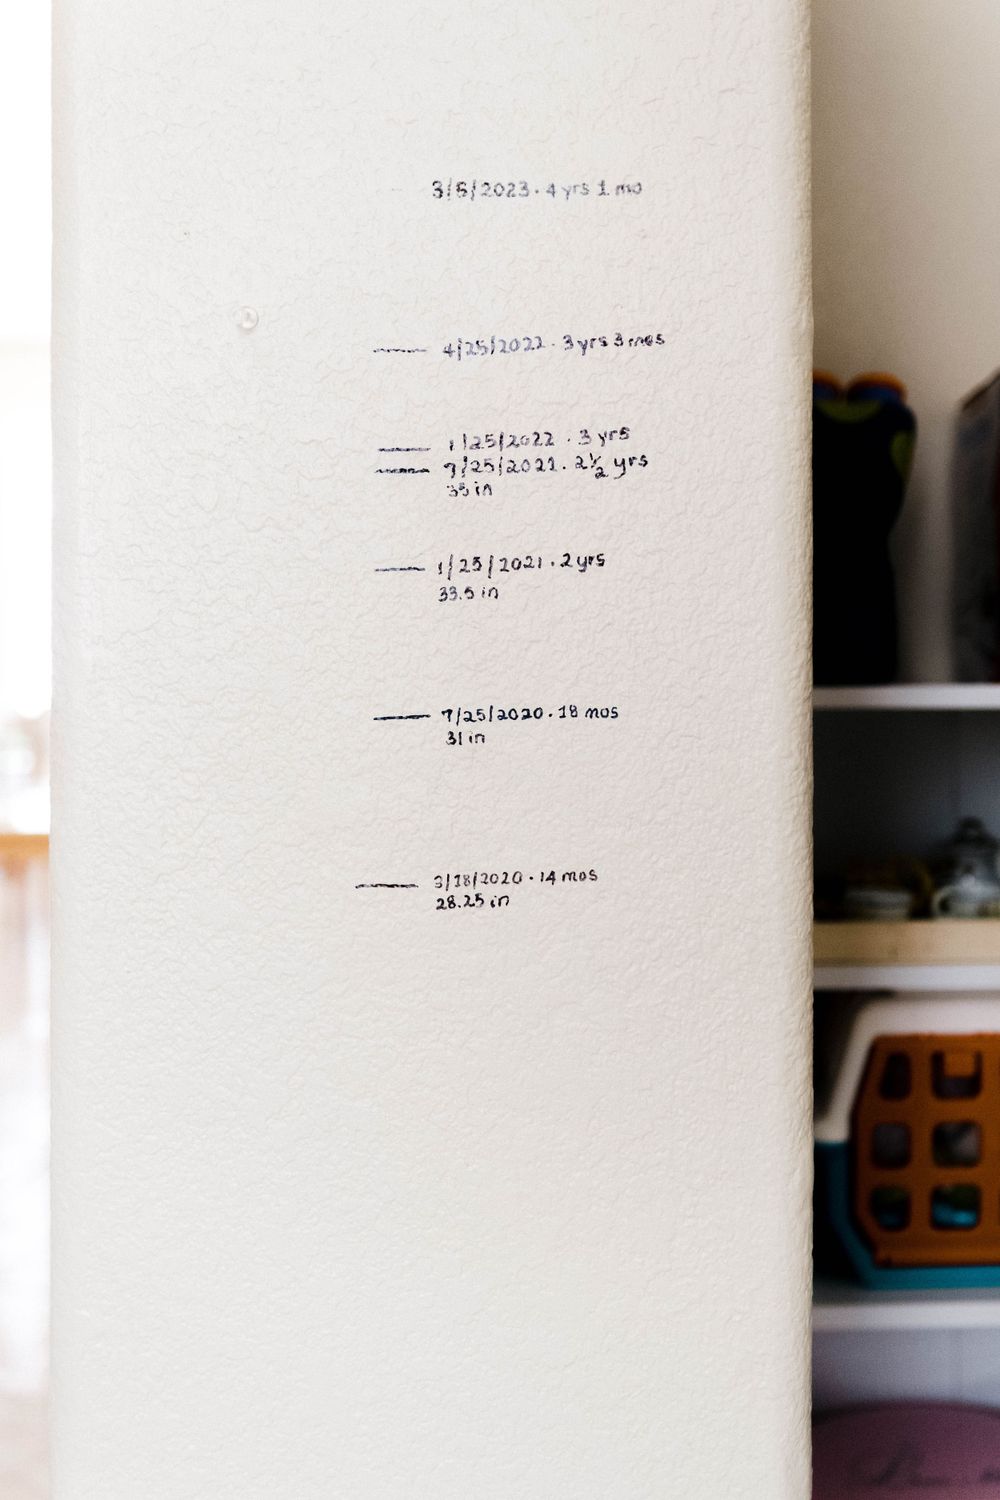 3/6/2023 · 4 yrs 1 mo
4/25/2022 · 3 yrs 3 mos
1/25/2022 · 3 yrs
7/25/2021 · 2 1/2 yrs
35 in
1/25/2021 · 2 yrs
33.5 in
7/25/2020 · 18 mos
31 in
3/18/2020 · 14 mos
28.25 in